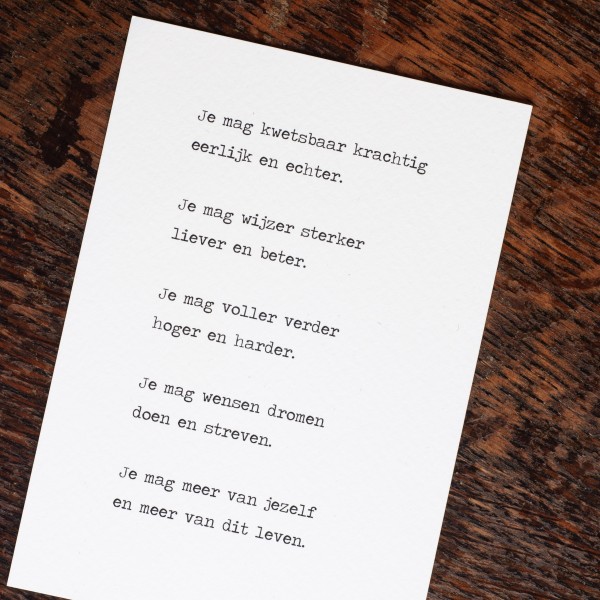 Je mag kwetsbaar krachtig
eerlijk en echter.
Je mag wijzer sterker
liever en beter.
Je mag voller verder
hoger en harder.
Je mag wensen dromen
doen en streven.
Je mag meer van jezelf
en meer van dit leven.